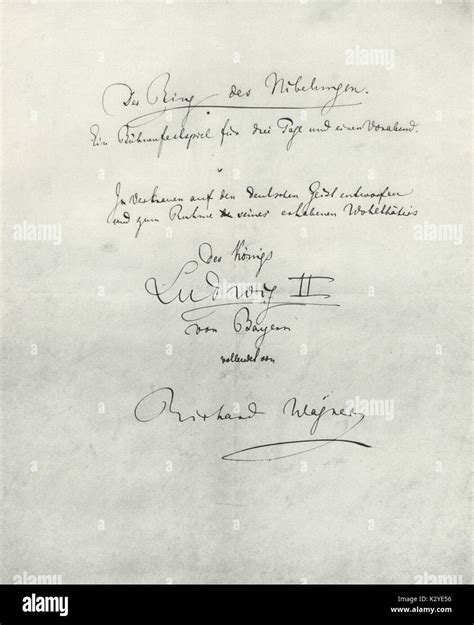 Der Ring des Nibelungen.
Ein Bühnenfestspiel für drei Tage und einen Vorabend.
Im Vertrauen auf den deutschen Geist entworfen
und zum Ruhme seines erhabenen Wohlthäters
Des Königs
Ludwig II
von Bayern
vollendet von
Richard Wagner.
alamy stock photo
K2YE56
www.alamy.com